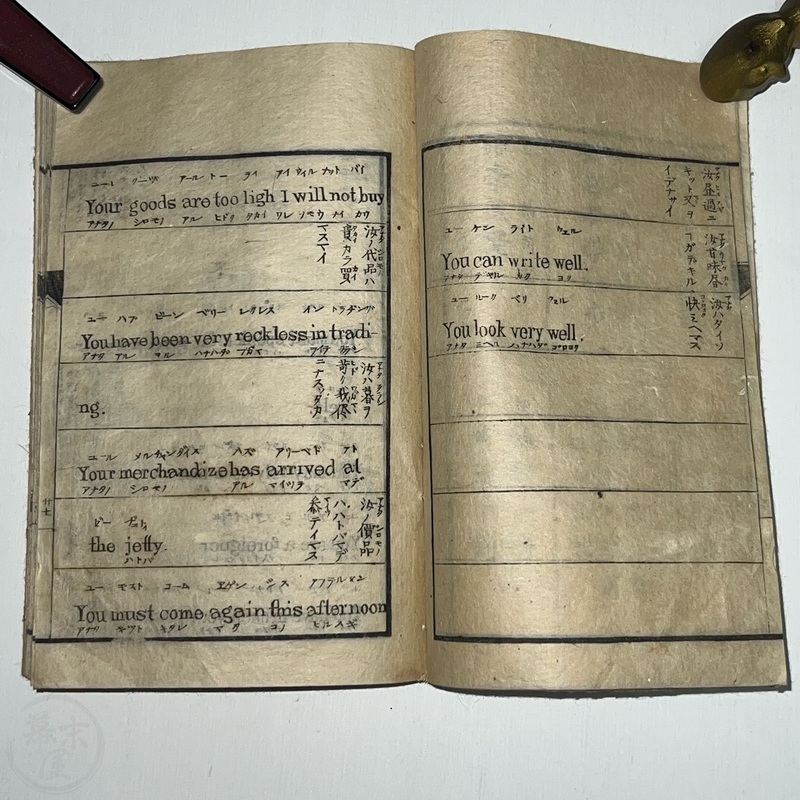 ユール グーツ アールトー ライ アイ ウィル ナット バイ
Your goods are too ligh I will not buy
アナタノ シロモノ アル ヒドク タカイ ワレ ナイ カウ
汝ノ代品ハ
貴カラ買
マスマイ
ユー ハブ ビーン ベリー レクレス イン トラヂング
You have been very reckless in tradi-
アナタ アル ハナハダ
汝ハ暮ヲ
苛ク我侭
ニナスッタカ
ng.
ユール メルチャンダイス ハズ アリーベド アト
Your merchandize has arrived at
アナタノ シロモノ アル マイツタ マデ
汝ノ價品
ハハトバマデ
参テイマス
the jetty.
ハトバ
ユー モスト コーム エゲン シス アフテルヌン
You must come again this afternoon
アナタ キット キタレ マタ コノ ヒルスギ
廿七
汝昼過ニ
キット又ヲ
イデナサイ
ユー ケン ライト ウェル
You can write well.
アナタ デキル カク ヨク
ユー ルーク ベリ ウェル
You look very well.
アナタ ミヘル ハナハダ ココロヨク
汝ハタイソ
快ミヘマス
幕末屋